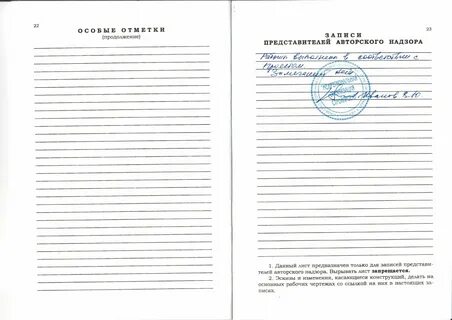 22
ОСОБЫЕ ОТМЕТКИ
(продолжение)
23
ЗАПИСИ
ПРЕДСТАВИТЕЛЕЙ АВТОРСКОГО НАДЗОРА
Работы выполнены в соответствии с
проектом.
Замечаний нет.
1. Данный лист предназначен только для записей представи-
телей авторского надзора. Вырывать лист запрещается.
2. Эскизы и изменения, касающиеся конструкций, делать на
основных рабочих чертежах со ссылкой на них в настоящих за-
писях.